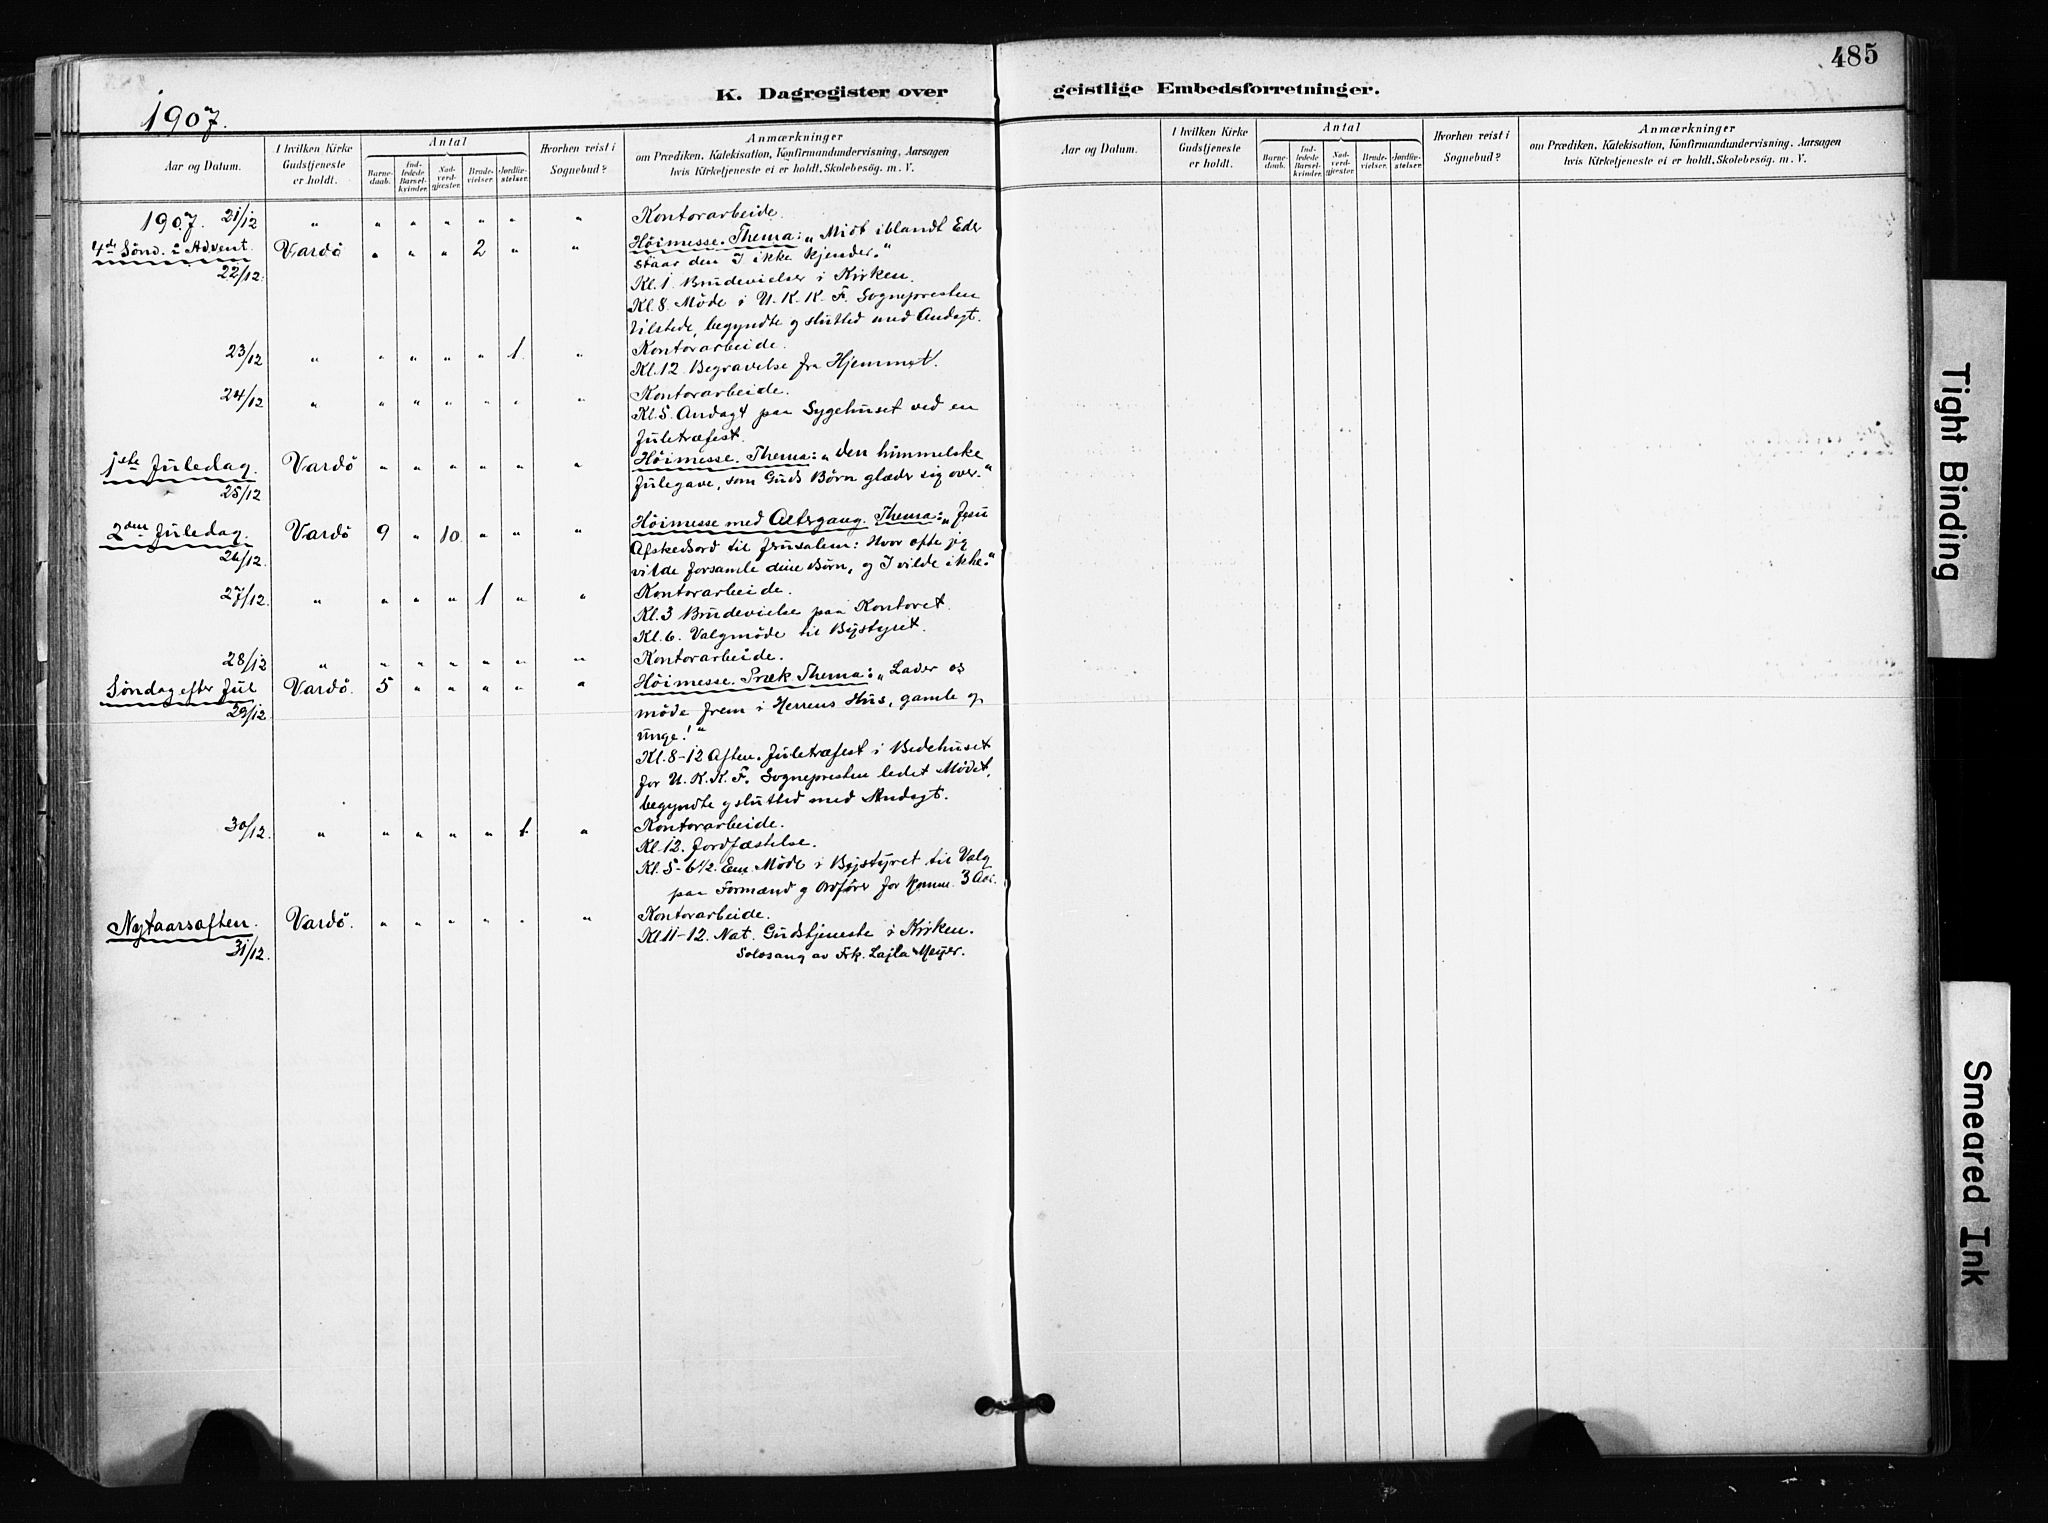 485
K. Dagregister over geistlige Embedsforretninger.
1907.
Aar og Datum.
I hvilken Kirke Gudstjeneste er holdt.
Antal
Barnedaab.
Indledede Barselkvinder.
Nadverdgjester.
Brudevielser.
Jordfæstelser.
Hvorhen reist i Sognebud?
Anmærkninger
om Prædiken, Katekisation, Konfirmandundervisning, Aarsagen
hvis Kirketjeneste ei er holdt, Skolebesøg. m. V.
Aar og Datum.
I hvilken Kirke Gudstjeneste er holdt.
Antal
Barnedaab.
Indledede Barselkvinder.
Nadverdgjester.
Brudevielser.
Jordfæstelser.
Hvorhen reist i Sognebud?
Anmærkninger
om Prædiken, Katekisation, Konfirmandundervisning, Aarsagen
hvis Kirketjeneste ei er holdt, Skolebesøg. m. V.
1907. 21/12 " " " " " " " Kontorarbeide.
4de Sønd. i Advent. Vardö " " " 2 " " Höimesse. Thema: „Midt iblandt Eder
22/12. staar den I ikke kjender."
Kl. 1 Brudevielser i Kirken.
Kl. 8 Möde i U. K. K. F. Sognepresten
tilstede, begyndte og slutted med Andagt.
23/12 " " " " " 1 " Kontorarbeide.
Kl. 12 Begravelse fra Hjemmet.
24/12 " " " " " " " Kontorarbeide.
Kl. 5 Andagt paa Sygehuset ved en
Juletræfest.
1ste Juledag. Vardö " " " " " " Höimesse. Thema: „den himmelske
25/12 Julegave, som Guds Börn glæder sig over."
2den Juledag. Vardö 9 " 10 " " " Höimesse med Altergang. Thema: „Jesu
26/12. Afskedsord til Jerusalem: Hvor ofte jeg
vilde forsamle dine Börn, og I vilde ikke."
27/12. " " " " 1 " " Kontorarbeide.
Kl. 3 Brudevielse paa Kontoret.
Kl. 6. Valgmöde til Bystyret.
28/12 " " " " " " " Kontorarbeide.
Söndag efter Jul Vardö. 5 " " " " " Höimesse. Præk Thema: „Lader os
29/12 möde frem i Herrens Hus, gamle og
unge!"
Kl. 8-12 Aften. Juletræfest i Bedehuset
for U. K. K. F. Sognepresten ledet Mödet,
begyndte og slutted med Andagt.
30/12. " " " " " 1. " Kontorarbeide.
Kl. 12. Jordfæstelse.
Kl. 5-6½. Em. Möde i Bystyret til Valg
paa Formænd og Ordförer for komm. 3 Aar.
Nytaarsaften. Vardö. " " " " " " Kontorarbeide.
31/12. Kl. 11-12. Nat. Gudstjeneste i Kirken.
Solosang av Frk. Lajla Meyer.
Tight Binding
Smeared Ink